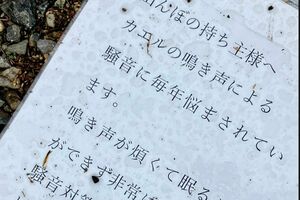 田んぼの持ち主様へ
カエルの鳴き声による
騒音に毎年悩まされてい
ます。
鳴き声が煩くて眠る
ができず非常に
騒音対策